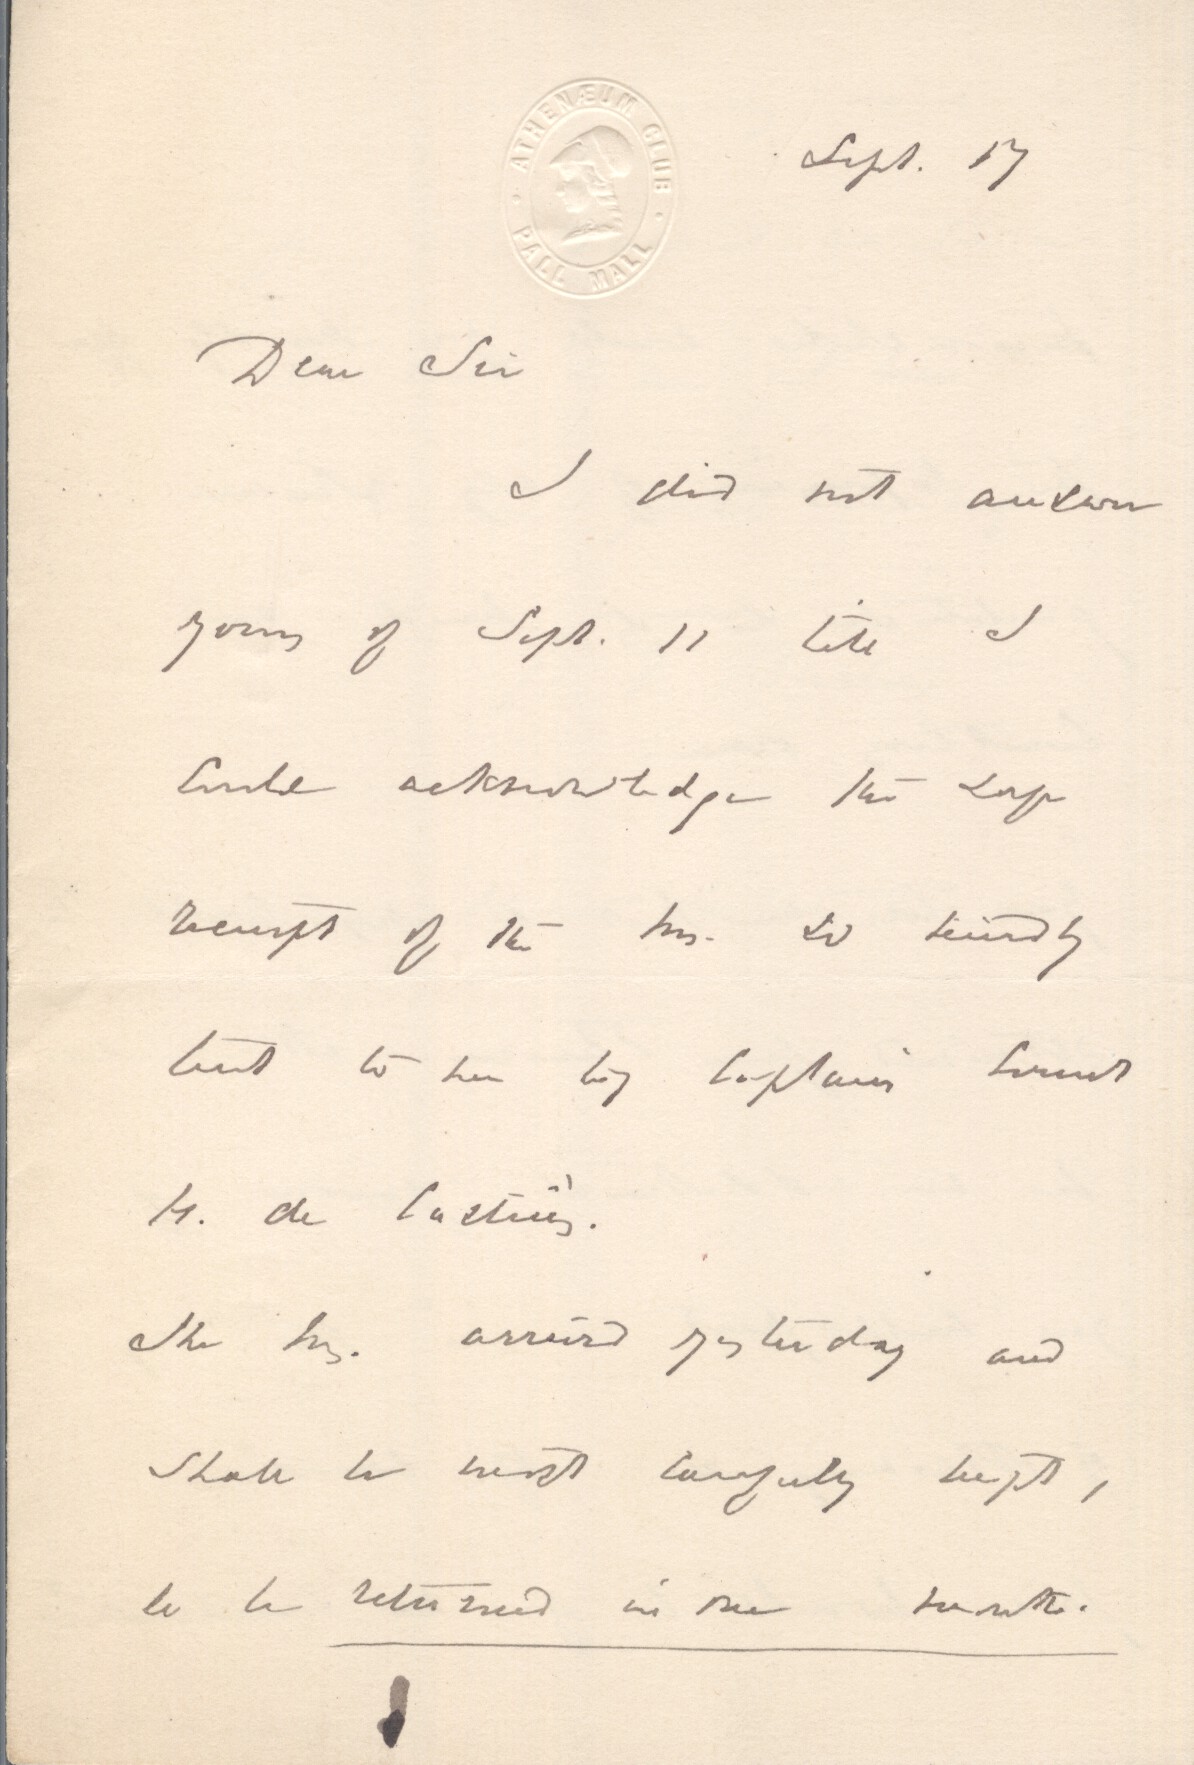 ATHENÆUM CLUB
PALL MALL
Sept. 17
Dear Sir
I did not answer
yours of Sept. 11 till I
could acknowledge the safe
receipt of the Ms. so kindly
lent to me by Captain Count
H. de Castries.
The Ms. arrived yesterday and
shall be most carefully kept,
to be returned in one month.